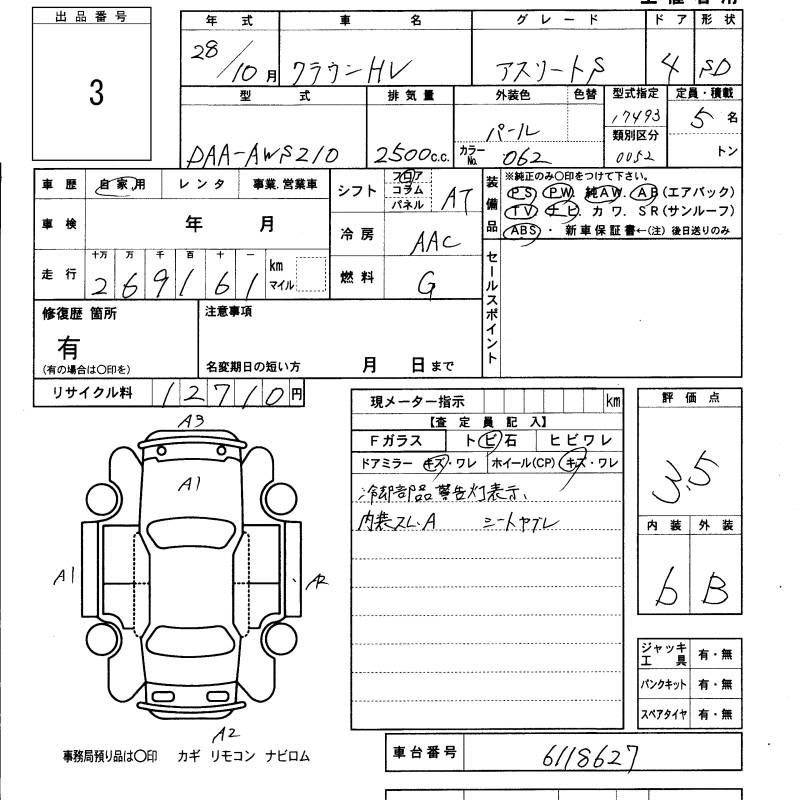 出品番号
3
年式 車名 グレード ドア 形状
28/10月 クラウンHV アスリートS 4 SD
型式 排気量 外装色 色替 型式指定 定員・積載
DAA-AWS210 2500c.c. パール 17493 5名
カラーNo. 062 類別区分 0052 トン
車歴 自家用 レンタ 事業.営業車
車検 年 月
走行 十万 万 千 百 十 一 km マイル
269161
シフト フロア コラム パネル AT
冷房 AAC
燃料 G
装備品 ※純正のみ〇印をつけて下さい。
PS PW. 純AW. AB(エアバック)
TV ナビ. カワ. SR(サンルーフ)
ABS ・ 新車保証書←(注)後日送りのみ
セールスポイント
修復歴 箇所
有
(有の場合は〇印を)
注意事項
名変期日の短い方 月 日まで
リサイクル料 12710円
現メーター指示 km
【査定員記入】
Fガラス トビ石 ヒビワレ
ドアミラー キズ・ワレ ホイール(CP) キズ・ワレ
冷却部品警告灯表示、
内装スレ.A シートヤブレ
評価点
3.5
内装 外装
b B
A3
A1
A1
A2
A2
ジャッキ工具 有・無
パンクキット 有・無
スペアタイヤ 有・無
事務局預り品は〇印 カギ リモコン ナビロム
車台番号 6118627